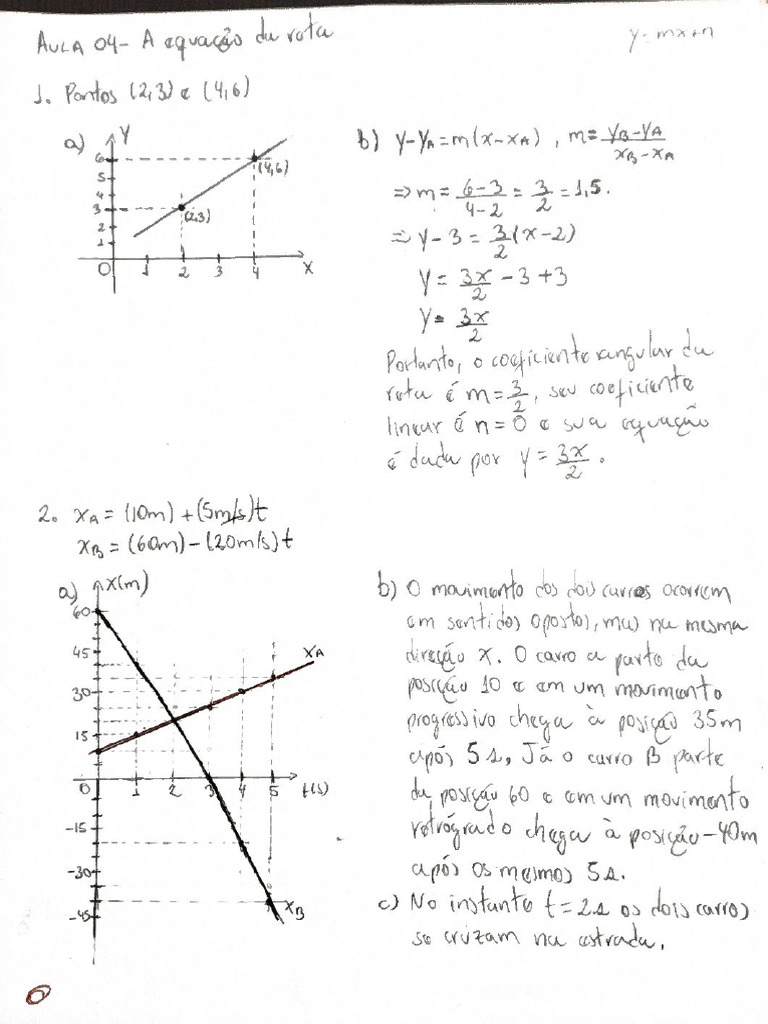 AULA 04 - A equação da reta
y = mx + n
1. Pontos (2,3) e (4,6)
a) Y
6
5
4
3
2
1
0 1 2 3 4 X
(4,6)
(2,3)
b) y - yA = m(x - xA) , m = yB - yA / xB - xA
⇒ m = 6-3 / 4-2 = 3/2 = 1,5.
⇒ y - 3 = 3/2 (x - 2)
y = 3x/2 - 3 + 3
y = 3x/2
Portanto, o coeficiente angular da
reta é m = 3/2, seu coeficiente
linear é n = 0 e sua equação
é dada por y = 3x/2.
2. xA = (10m) + (5m/s)t
xB = (60m) - (20m/s)t
a) X(m)
60
45
30
15
0 1 2 3 4 5 t(s)
-15
-30
-45
XA
XB
b) O movimento dos dois carros ocorrem
em sentidos opostos, mas na mesma
direção x. O carro a parte da
posição 10 e em um movimento
progressivo chega à posição 35m
após 5s. Já o carro B parte
da posição 60 e em um movimento
retrógrado chega à posição -40m
após os mesmos 5s.
c) No instante t = 2s os dois carros
se cruzam na estrada.